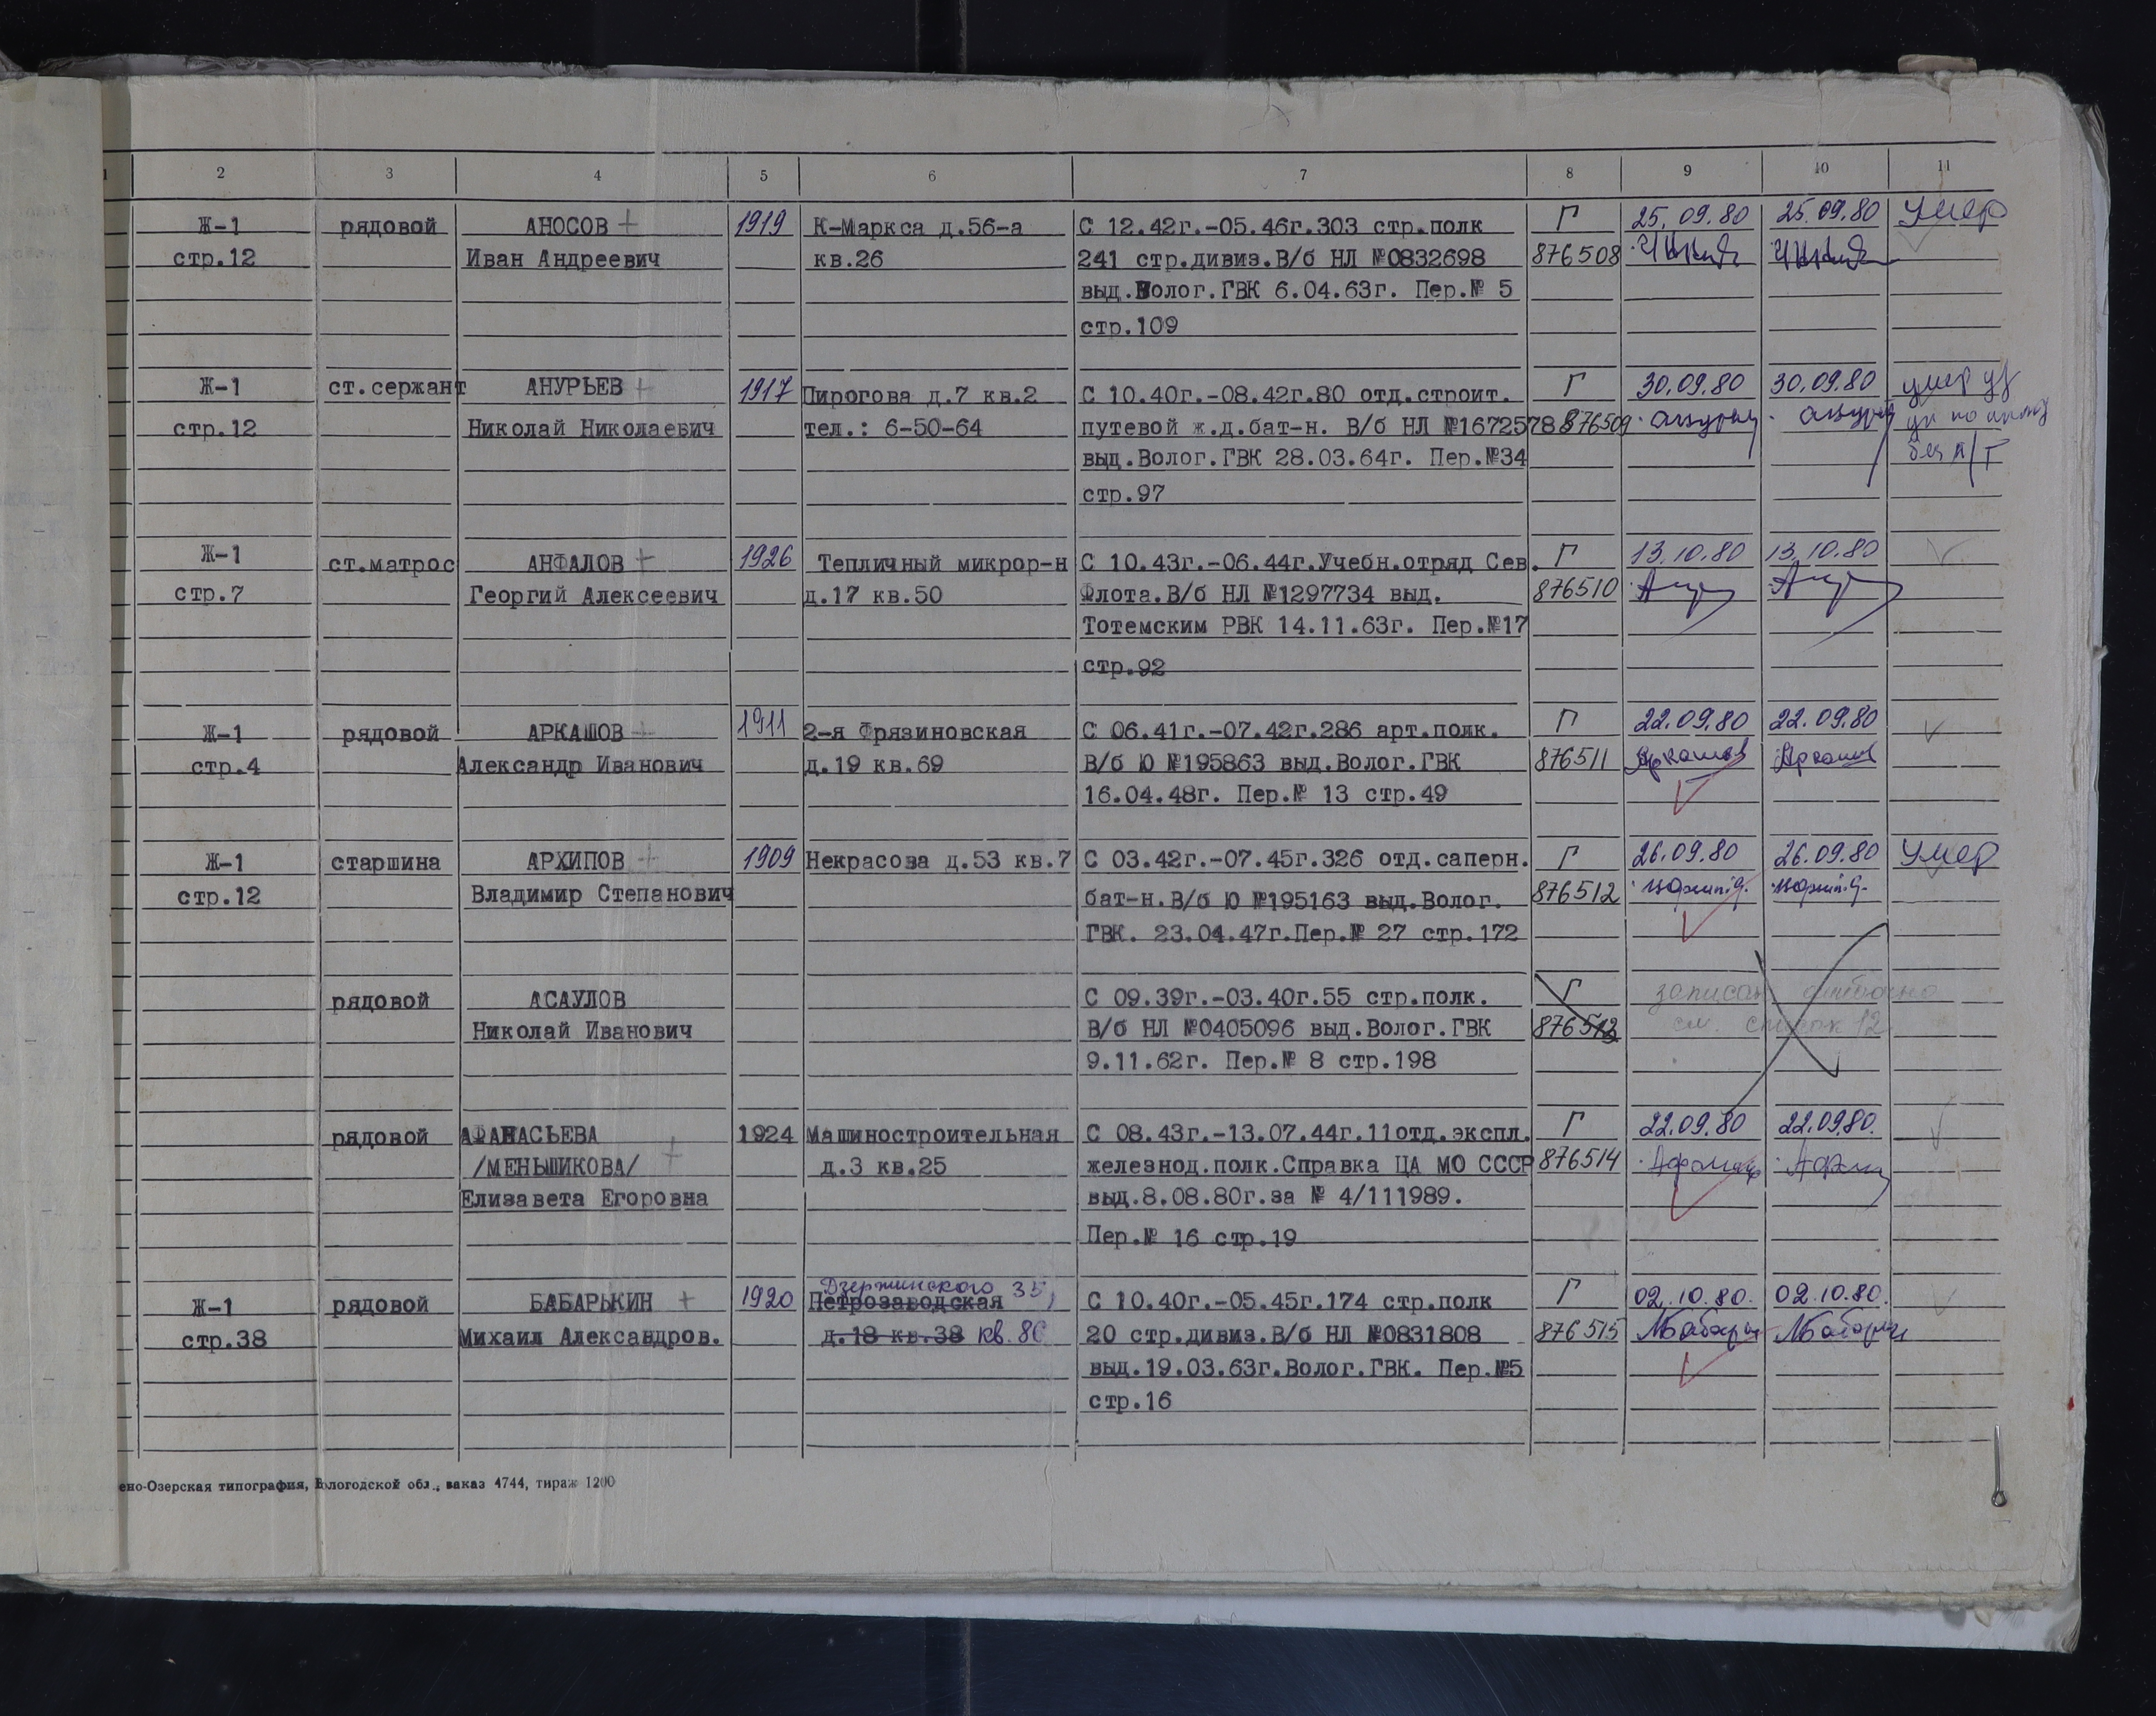 1 2 3 4 5 6 7 8 9 10 11
Ж-1 рядовой АНОСОВ + 1919 К-Маркса д.56-а С 12.42г.-05.46г.303 стр.полк Г 25.09.80 25.09.80 Умер
стр.12 Иван Андреевич кв.26 241 стр.дивиз.В/б НЛ №0832698 876508
выд.Волог.ГВК 6.04.63г. Пер.№ 5
стр.109
Ж-1 ст.сержант АНУРЬЕВ + 1917 Пирогова д.7 кв.2 С 10.40г.-08.42г.80 отд.строит. Г 30.09.80 30.09.80 умер
стр.12 Николай Николаевич тел.: 6-50-64 путевой ж.д.бат-н. В/б НЛ №1672578 876509
выд.Волог.ГВК 28.03.64г. Пер.№34 без
стр.97
Ж-1 ст.матрос АНФАЛОВ + 1926 Тепличный микрор-н С 10.43г.-06.44г.Учебн.отряд Сев. Г 13.10.80 13.10.80
стр.7 Георгий Алексеевич д.17 кв.50 Флота.В/б НЛ №1297734 выд. 876510
Тотемским РВК 14.11.63г. Пер.№17
стр.92
Ж-1 рядовой АРКАШОВ + 1911 2-я Фрязиновская С 06.41г.-07.42г.286 арт.полк. Г 22.09.80 22.09.80
стр.4 Александр Иванович д.19 кв.69 В/б Ю №195863 выд.Волог.ГВК 876511 Аркашов Аркашов
16.04.48г. Пер.№ 13 стр.49
Ж-1 старшина АРХИПОВ + 1909 Некрасова д.53 кв.7 С 03.42г.-07.45г.326 отд.саперн. Г 26.09.80 26.09.80 Умер
стр.12 Владимир Степанович бат-н.В/б Ю №195163 выд.Волог. 876512
ГВК. 23.04.47г.Пер.№ 27 стр.172
рядовой АСАУЛОВ С 09.39г.-03.40г.55 стр.полк. Г записан ошибочно
Николай Иванович В/б НЛ №0405096 выд.Волог.ГВК 876513 см. список 12
9.11.62г. Пер.№ 8 стр.198
рядовой АФАНАСЬЕВА 1924 Машиностроительная С 08.43г.-13.07.44г.11отд.экспл. Г 22.09.80 22.09.80.
/МЕНЬШИКОВА/ + д.3 кв.25 железнод.полк.Справка ЦА МО СССР 876514
Елизавета Егоровна выд.8.08.80г.за № 4/111989.
Пер.№ 16 стр.19
Дзержинского 35,
Ж-1 рядовой БАБАРЫКИН + 1920 Петрозаводская С 10.40г.-05.45г.174 стр.полк Г 02.10.80. 02.10.80.
стр.38 Михаил Александров. д.18 кв.38 кв.86 20 стр.дивиз.В/б НЛ №0831808 876515
выд.19.03.63г.Волог.ГВК. Пер.№5
стр.16
ено-Озерская типография, Вологодской обл., заказ 4744, тираж 1200